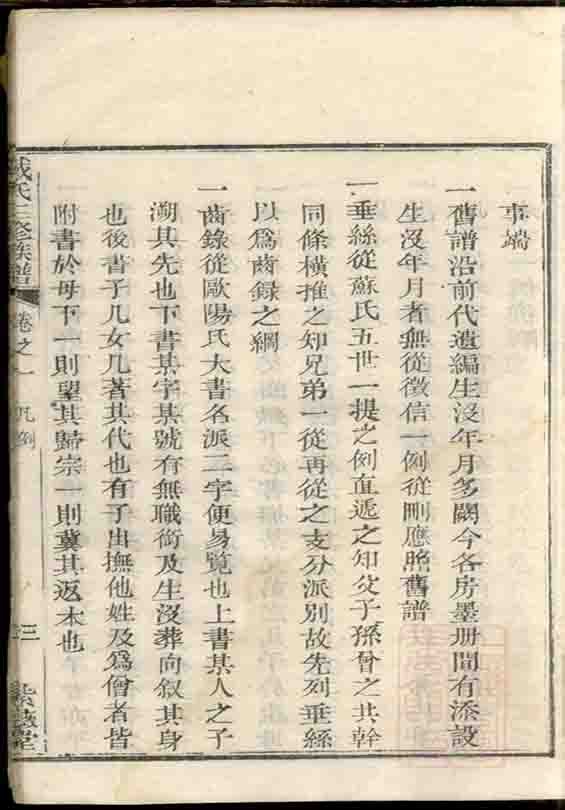 事端
一舊譜沿前代遺編生沒年月多闕今各房墨册間有添設
生沒年月者無從徵信一例從刪應照舊譜
一垂絲從蘇氏五世一提之例直遞之知父子孫曾之共幹
同條橫推之知兄弟一從再從之支分派別故先列垂絲
以爲齒錄之綱
一齒錄從歐陽氏大書名派二字便易覽也上書某人之子
溯其先也下書某字某號有無職銜及生沒葬向叙其身
也後書子几女几著其代也有子出撫他姓及爲僧者皆
附書於母下一則望其歸宗一則冀其返本也
氏三修族譜
卷之一
凡例
三